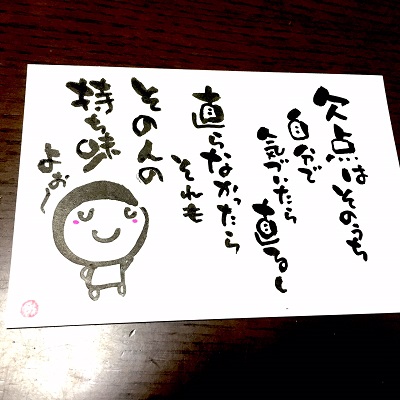 欠点はそのうち
自分で
気づいたら
直るし
直らなかったら
それも
その人の
持ち味
よぉ〜